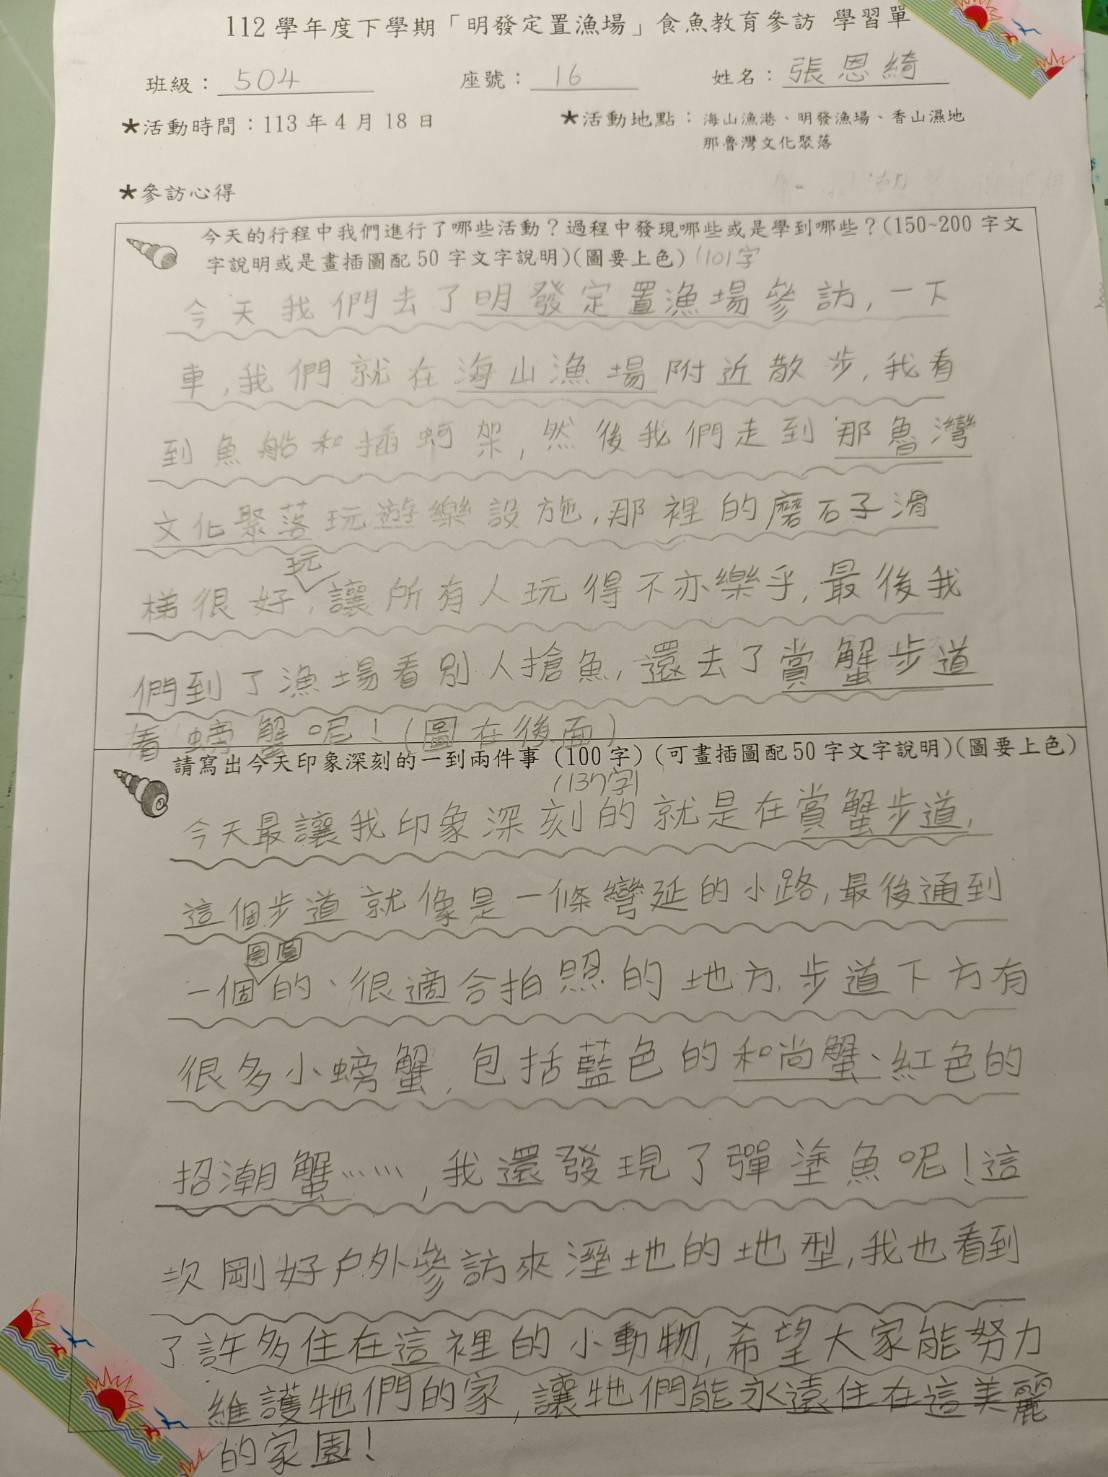 112 學年度下學期「明發定置漁場」食魚教育參訪 學習單
班級：504 座號：16 姓名：張恩綺
★活動時間：113 年 4 月 18 日 ★活動地點：海山漁港、明發漁場、香山濕地
那魯灣文化聚落
★參訪心得
今天的行程中我們進行了哪些活動？過程中發現哪些或是學到哪些？(150~200 字文
字說明或是畫插圖配 50 字文字說明)(圖要上色) (101字
今天我們去了明發定置漁場參訪,一下
車,我們就在海山漁場附近散步,我看
到魚船和插蚵架,然後我們走到那魯灣
文化聚落玩遊樂設施,那裡的磨石子滑
梯很好玩,讓所有人玩得不亦樂乎,最後我
們到了漁場看別人搶魚,還去了賞蟹步道
看螃蟹呢!(圖在後面)
請寫出今天印象深刻的一到兩件事 (100 字) (可畫插圖配 50 字文字說明)(圖要上色)
(137字)
今天最讓我印象深刻的就是在賞蟹步道,
這個步道就像是一條彎延的小路,最後通到
一個圓圓的、很適合拍照的地方.步道下方有
很多小螃蟹,包括藍色的和尚蟹、紅色的
招潮蟹……,我還發現了彈塗魚呢!這
次剛好戶外參訪來溼地的地型,我也看到
了許多住在這裡的小動物,希望大家能努力
維護牠們的家,讓牠們能永遠住在這美麗
的家園!